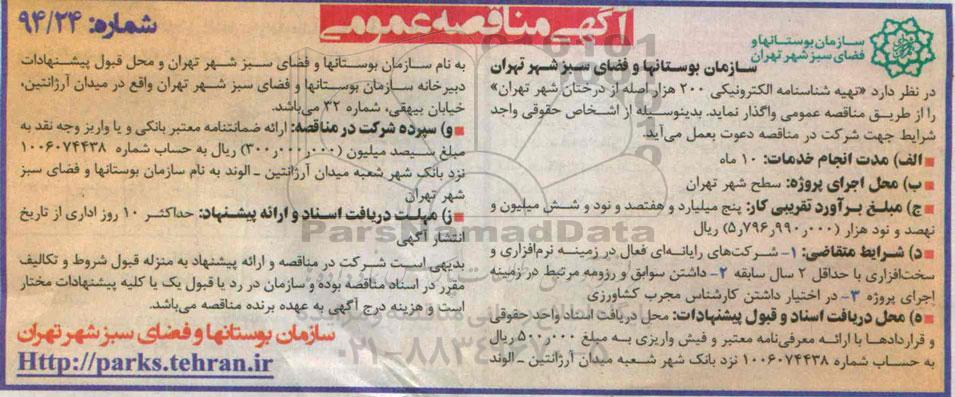 آگهی مناقصه عمومی
شماره: ۹۴/۲۴
سازمان بوستانها و
فضای سبز شهر تهران
سازمان بوستانها و فضای سبز شهر تهران
در نظر دارد «تهیه شناسنامه الکترونیکی ۲۰۰ هزار اصله از درختان شهر تهران»
را از طریق مناقصه عمومی واگذار نماید. بدینوسیله از اشخاص حقوقی واجد
شرایط جهت شرکت در مناقصه دعوت بعمل می‌آید.
الف) مدت انجام خدمات: ۱۰ ماه
ب) محل اجرای پروژه: سطح شهر تهران
ج) مبلغ برآورد تقریبی کار: پنج میلیارد و هفتصد و نود و شش میلیون و
نهصد و نود هزار (۵٫۷۹۶٫۹۹۰٫۰۰۰) ریال
د) شرایط متقاضی: ۱- شرکت‌های رایانه‌ای فعال در زمینه نرم‌افزاری و
سخت‌افزاری با حداقل ۲ سال سابقه ۲- داشتن سوابق و رزومه مرتبط در زمینه
اجرای پروژه ۳- در اختیار داشتن کارشناس مجرب کشاورزی
ه) محل دریافت اسناد و قبول پیشنهادات: محل دریافت اسناد واحد حقوقی
و قراردادها با ارائه معرفی‌نامه معتبر و فیش واریزی به مبلغ ۵۰۰٫۰۰۰ ریال
به حساب شماره ۱۰۰۶۰۷۴۴۳۸ نزد بانک شهر شعبه میدان آرژانتین ـ الوند
به نام سازمان بوستانها و فضای سبز شهر تهران و محل قبول پیشنهادات
دبیرخانه سازمان بوستانها و فضای سبز شهر تهران واقع در میدان آرژانتین،
خیابان بیهقی، شماره ۳۲ می‌باشد.
و) سپرده شرکت در مناقصه: ارائه ضمانتنامه معتبر بانکی و یا واریز وجه نقد به
مبلغ سیصد میلیون (۳۰۰٫۰۰۰٫۰۰۰) ریال به حساب شماره ۱۰۰۶۰۷۴۴۳۸
نزد بانک شهر شعبه میدان آرژانتین ـ الوند به نام سازمان بوستانها و فضای سبز
شهر تهران
ز) مهلت دریافت اسناد و ارائه پیشنهاد: حداکثر ۱۰ روز اداری از تاریخ
انتشار آگهی
بدیهی است شرکت در مناقصه و ارائه پیشنهاد به منزله قبول شروط و تکالیف
مقرر در اسناد مناقصه بوده و سازمان در رد یا قبول یک یا کلیه پیشنهادات مختار
است و هزینه درج آگهی به عهده برنده مناقصه می‌باشد.
سازمان بوستانها و فضای سبز شهر تهران
Http://parks.tehran.ir
ParsNamadData